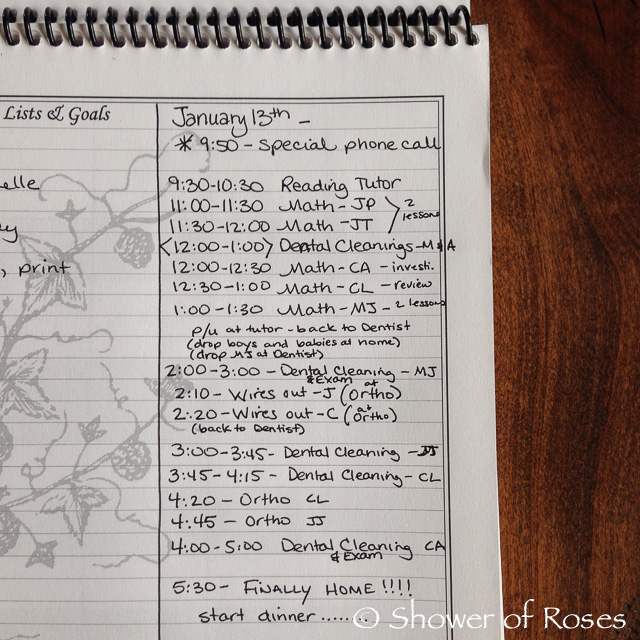 Lists & Goals
January 13th -
* 9:50 - special phone call
elle
9:30-10:30 Reading Tutor
11:00-11:30 Math - JP 2 lessons
11:30-12:00 Math - JT
<12:00-1:00> Dental Cleanings - M & A
, print
12:00-12:30 Math - CA - investi.
12:30-1:00 Math - CL - review
1:00-1:30 Math - MJ - 2 lessons
p/u at tutor - back to Dentist
(drop boys and babies at home)
(drop MJ at Dentist)
2:00-3:00 - Dental Cleaning - MJ
& Exam
2:10 - Wires out - J (at Ortho)
2:20 - Wires out - C (at Ortho)
(back to Dentist)
3:00-3:45 - Dental Cleaning -
3:45-4:15 - Dental Cleaning - CL
4:20 - Ortho CL
4:45 - Ortho JJ
4:00-5:00 Dental Cleaning CA
& Exam
5:30 - FINALLY HOME!!!!
start dinner........
© Shower of Roses